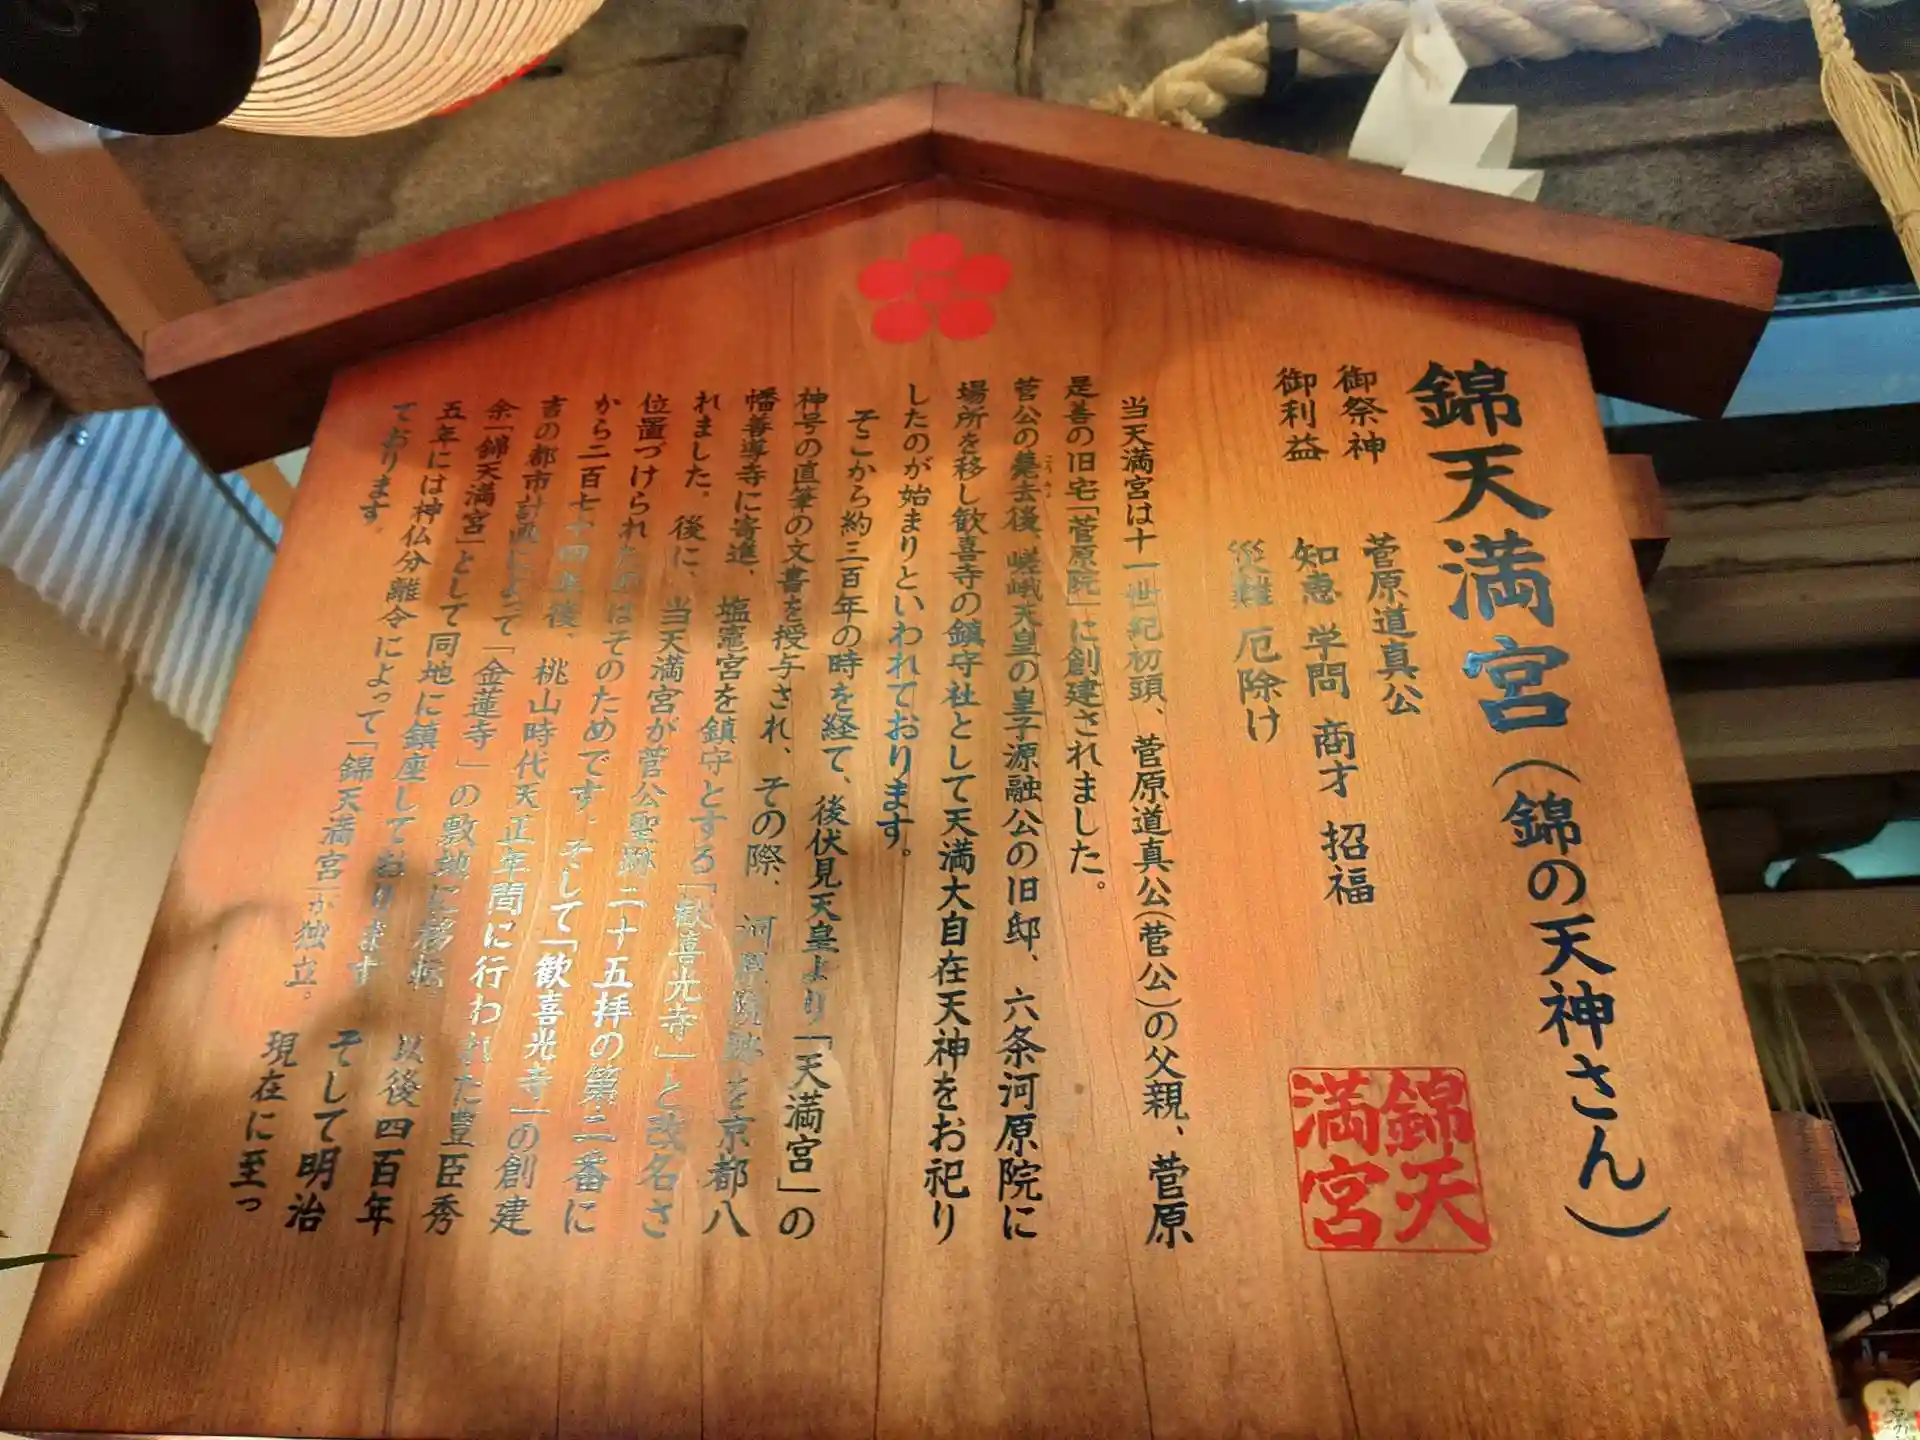 錦天満宮（錦の天神さん）
御祭神　菅原道真公
御利益　知恵　学問　商才　招福
災難　厄除け
錦天
満宮
当天満宮は十一世紀初頭、菅原道真公（菅公）の父親、菅原
是善の旧宅「菅原院」に創建されました。
菅公の薨去後、嵯峨天皇の皇子源融公の旧邸、六条河原院に
場所を移し歓喜寺の鎮守社として天満大自在天神をお祀り
したのが始まりといわれております。
そこから約三百年の時を経て、後伏見天皇より「天満宮」の
神号の直筆の文書を授与され、その際、河原院跡を京都八
幡善導寺に寄進、塩竈宮を鎮守とする「歓喜光寺」と改名さ
れました。後に、当天満宮が菅公聖跡二十五拝の第二番に
位置づけられたのはそのためです。そして「歓喜光寺」の創建
から二百七十四年後、桃山時代天正年間に行われた豊臣秀
吉の都市計画によって「金蓮寺」の敷地に移転。以後四百年
余「錦天満宮」として同地に鎮座しております。そして明治
五年には神仏分離令によって「錦天満宮」が独立。現在に至っ
ております。